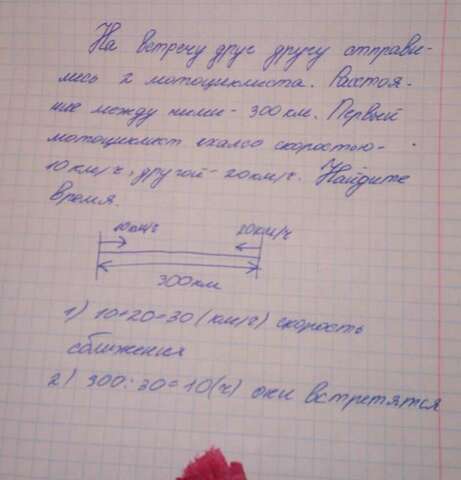 На встречу друг другу отправи-
лись 2 мотоциклиста. Расстоя-
ние между ними - 300 км. Первый
мотоциклист ехал со скоростью-
10 км/ч, другой - 20 км/ч. Найдите
время.
10 км/ч 20 км/ч
300 км
1) 10+20=30 (км/ч) скорость
сближения
2) 300:30=10(ч) они встретятся